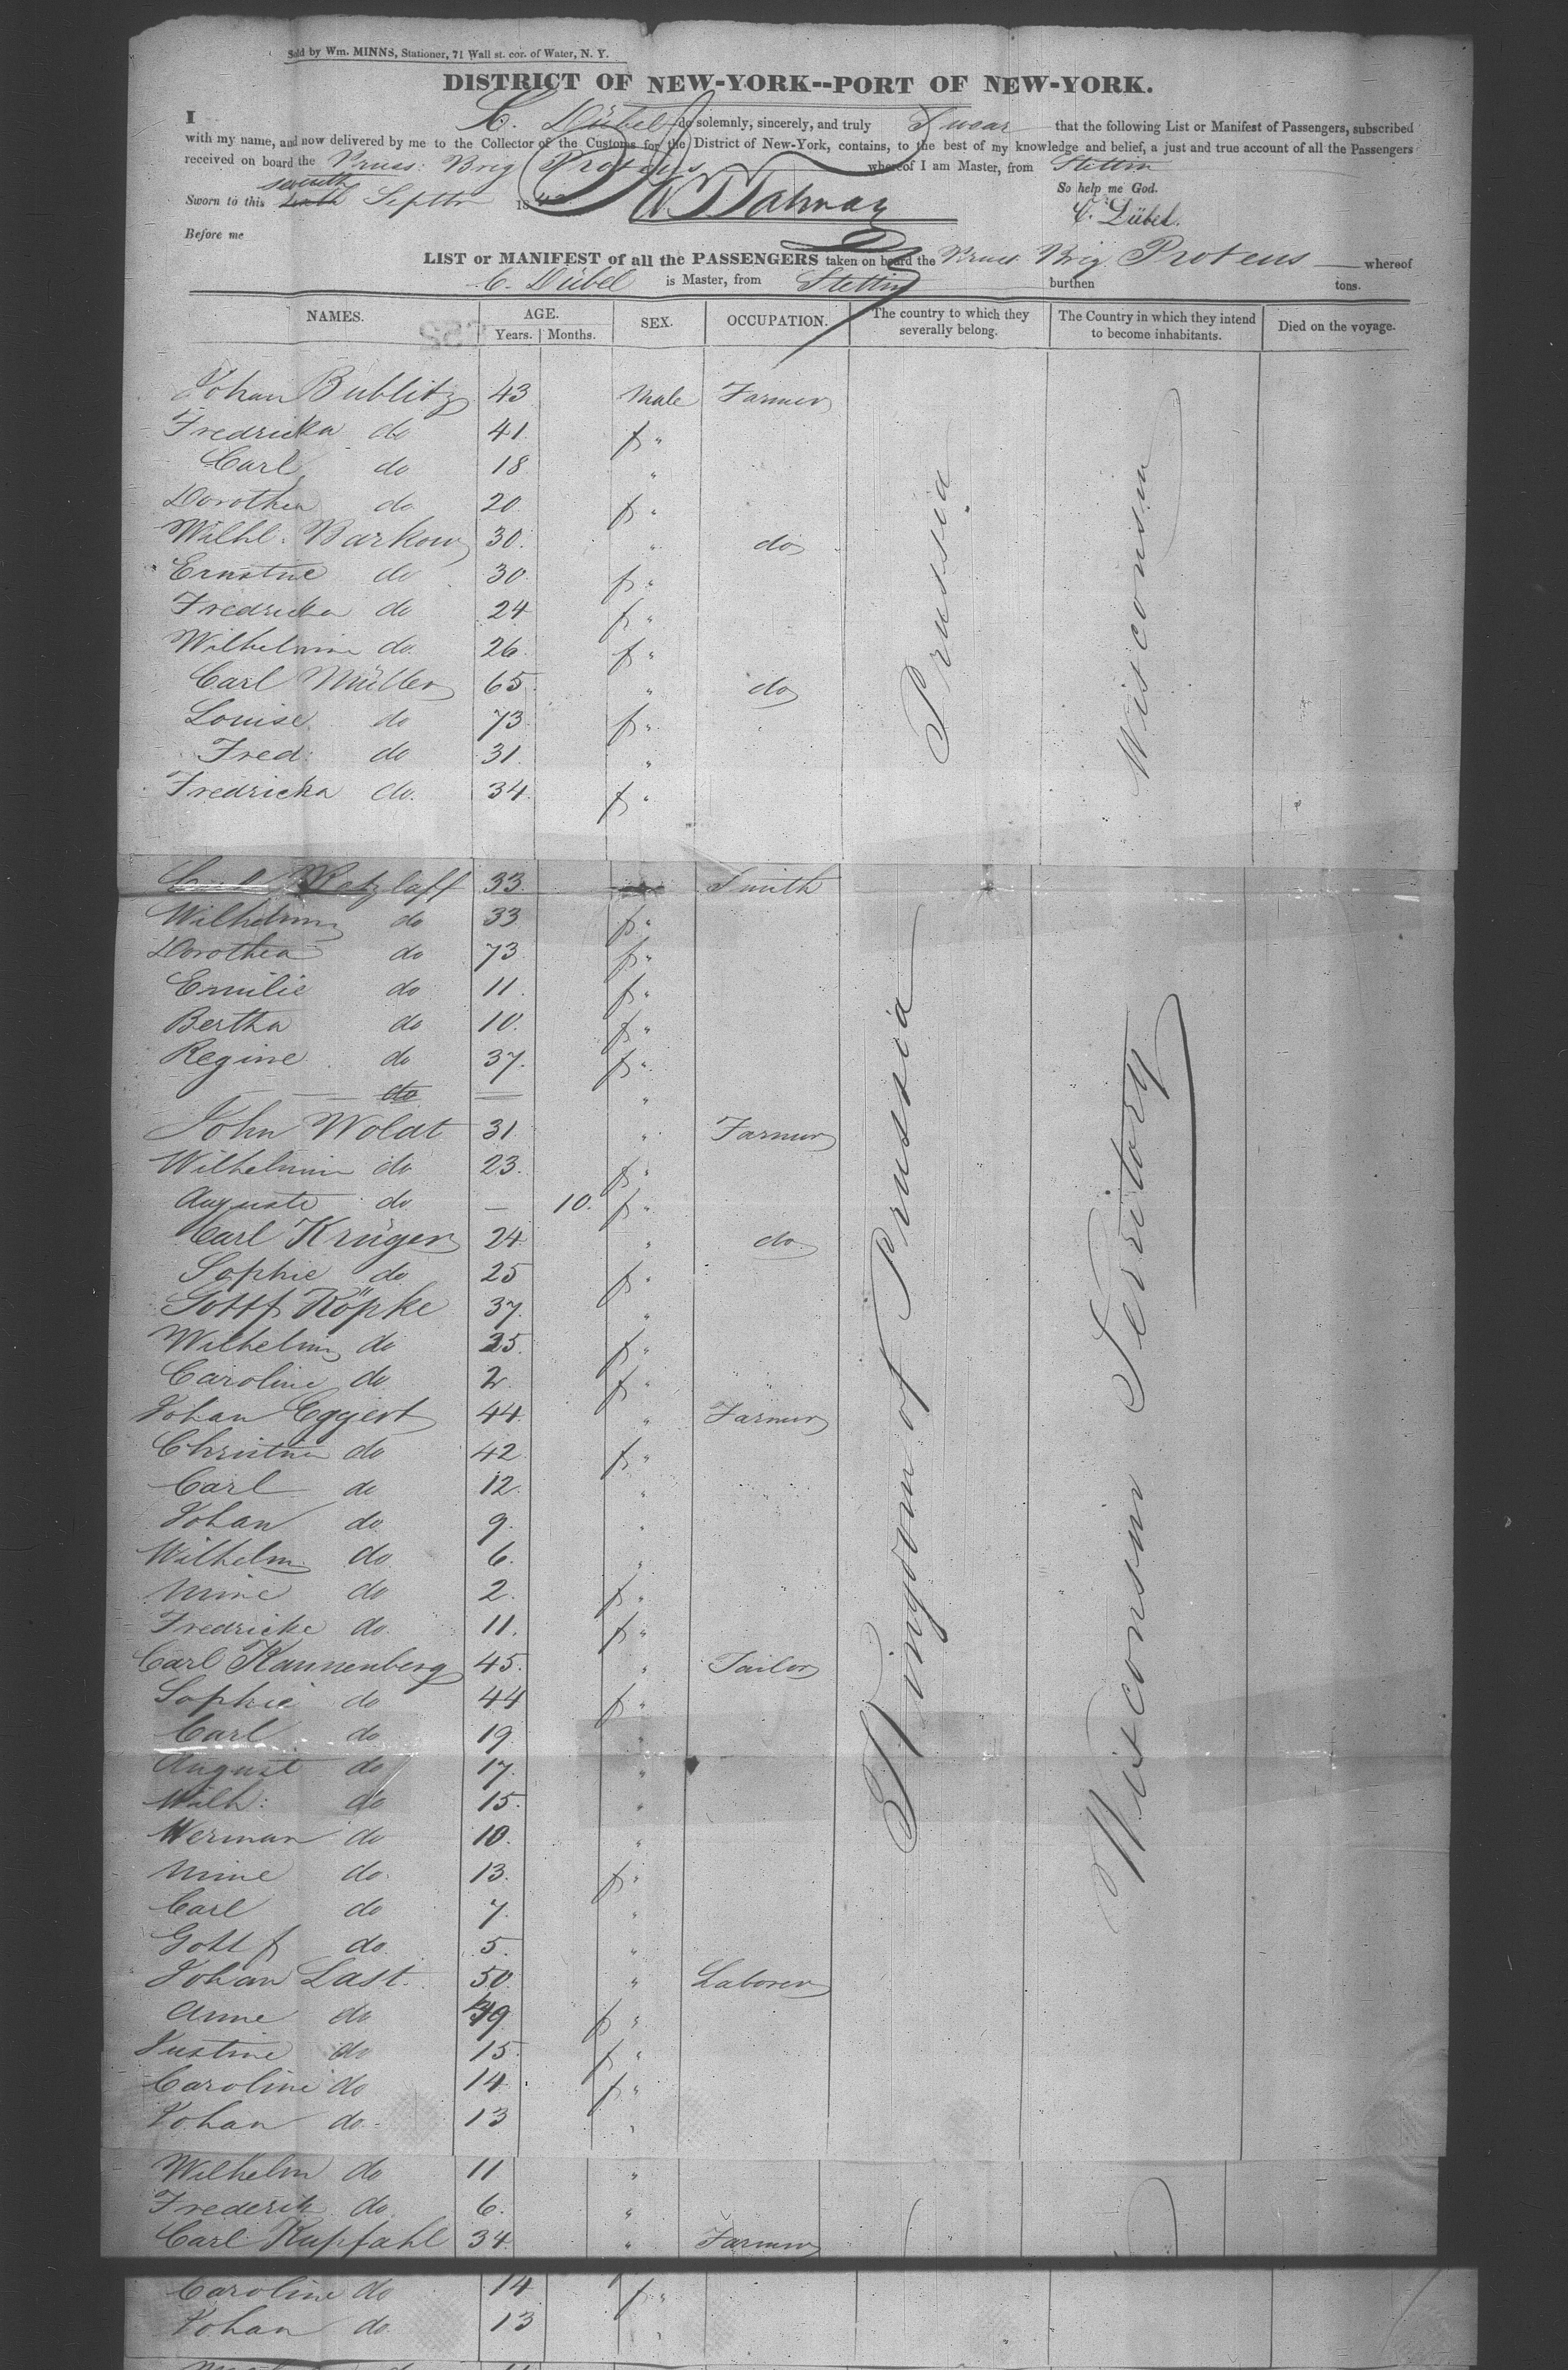 Sold by Wm. MINNS, Stationer, 71 Wall st. cor. of Water, N. Y.
DISTRICT OF NEW-YORK--PORT OF NEW-YORK.
I C. Dübel do solemnly, sincerely, and truly Swear that the following List or Manifest of Passengers, subscribed
with my name, and now delivered by me to the Collector of the Customs for the District of New-York, contains, to the best of my knowledge and belief, a just and true account of all the Passengers
received on board the Pruss. Brig Proteus whereof I am Master, from Stettin
So help me God.
seventh
Sworn to this tenth Septbr 184
C. Dübel.
Before me
LIST or MANIFEST of all the PASSENGERS taken on board the Pruss Brig Proteus whereof
C. Dübel is Master, from Stettin burthen tons.
NAMES. AGE. SEX. OCCUPATION. The country to which they severally belong. The Country in which they intend to become inhabitants. Died on the voyage.
Years. Months.
Johan Bublitz 43 Male Farmer
Fredricka do 41 f "
Carl do 18 "
Dorothea do 20 f "
Wilhl. Barkow 30 " do
Ernstine do 30 f "
Fredricka do 24 f "
Wilhelmine do 26 f "
Carl Müller 65 " do
Louise do 73 f "
Fred: do 31 "
Fredricka do 34 f "
Prussia
Wisconsin
Carl Ratzlaff 33 Smith
Wilhelmine do 33 f "
Dorothea do 73 f "
Emilie do 11 f "
Bertha do 10 f "
Regine do 37 f "
do "
John Woldt 31 " Farmer
Wilhelmine do 23 f "
Auguste do — 10 f "
Carl Krüger 24 " do
Sophie do 25 f "
Gottf Köpke 37 "
Wilhelmine do 25 f "
Caroline do 2 f "
Johan Eggert 44 " Farmer
Christine do 42 f "
Carl do 12 "
Johan do 9 "
Wilhelm do 6 "
Mine do 2 f "
Fredricke do 11 f "
Carl Kannenberg 45 " Tailor
Sophie do 44 f "
Carl do 19 "
August do 17 "
Wilh: do 15 "
Herman do 10 "
Mine do 13 f "
Carl do 7 "
Gottf do 5 "
Johan Last 50 " Laborer
Anne do 49 f "
Justine do 15 f "
Caroline do 14 f "
Johan do 13 "
Kingdom of Prussia
Wisconsin Territory
Wilhelm do 11 "
Frederik do 6 "
Carl Kupfahl 34 " Farmer
Caroline do 14 f "
Johan do 13 "